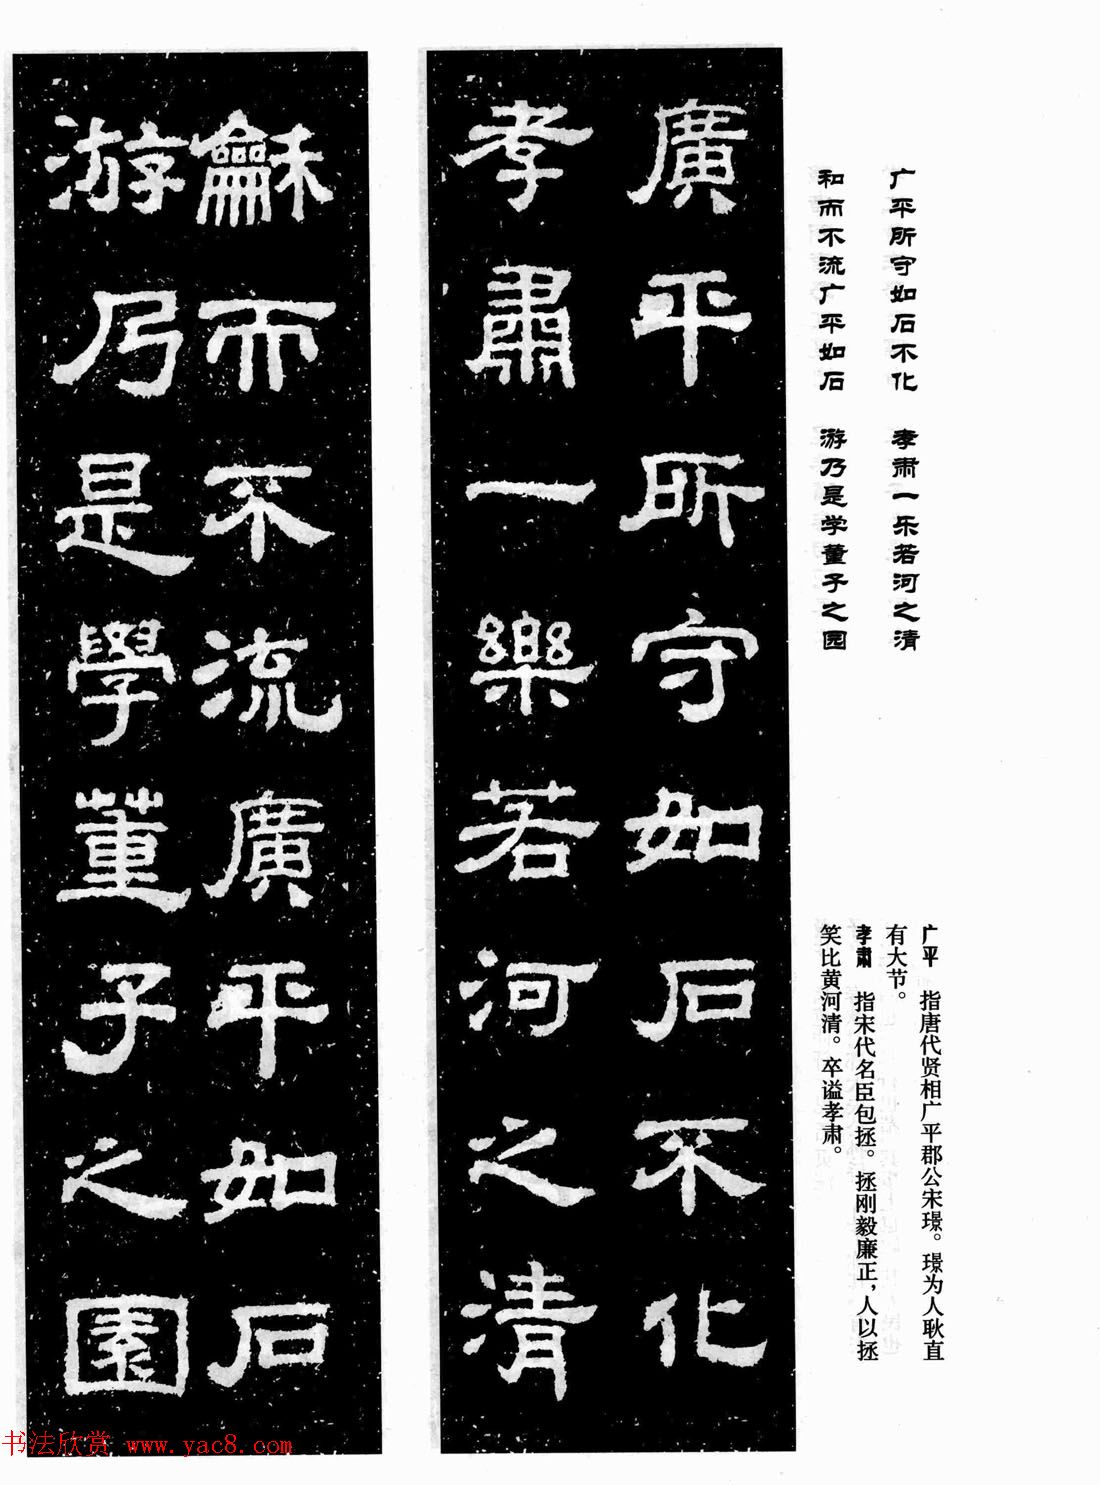 广平所守如石不化 孝肃一乐若河之清
和而不流广平如石 游乃是学董子之园
广平 指唐代贤相广平郡公宋璟。璟为人耿直
有大节。
孝肃 指宋代名臣包拯。拯刚毅廉正，人以拯
笑比黄河清。卒谥孝肃。
廣平所守如石不化
孝肅一樂若河之清
龢而不流廣平如石
游乃是學董子之園
书法欣赏 www.yac8.com